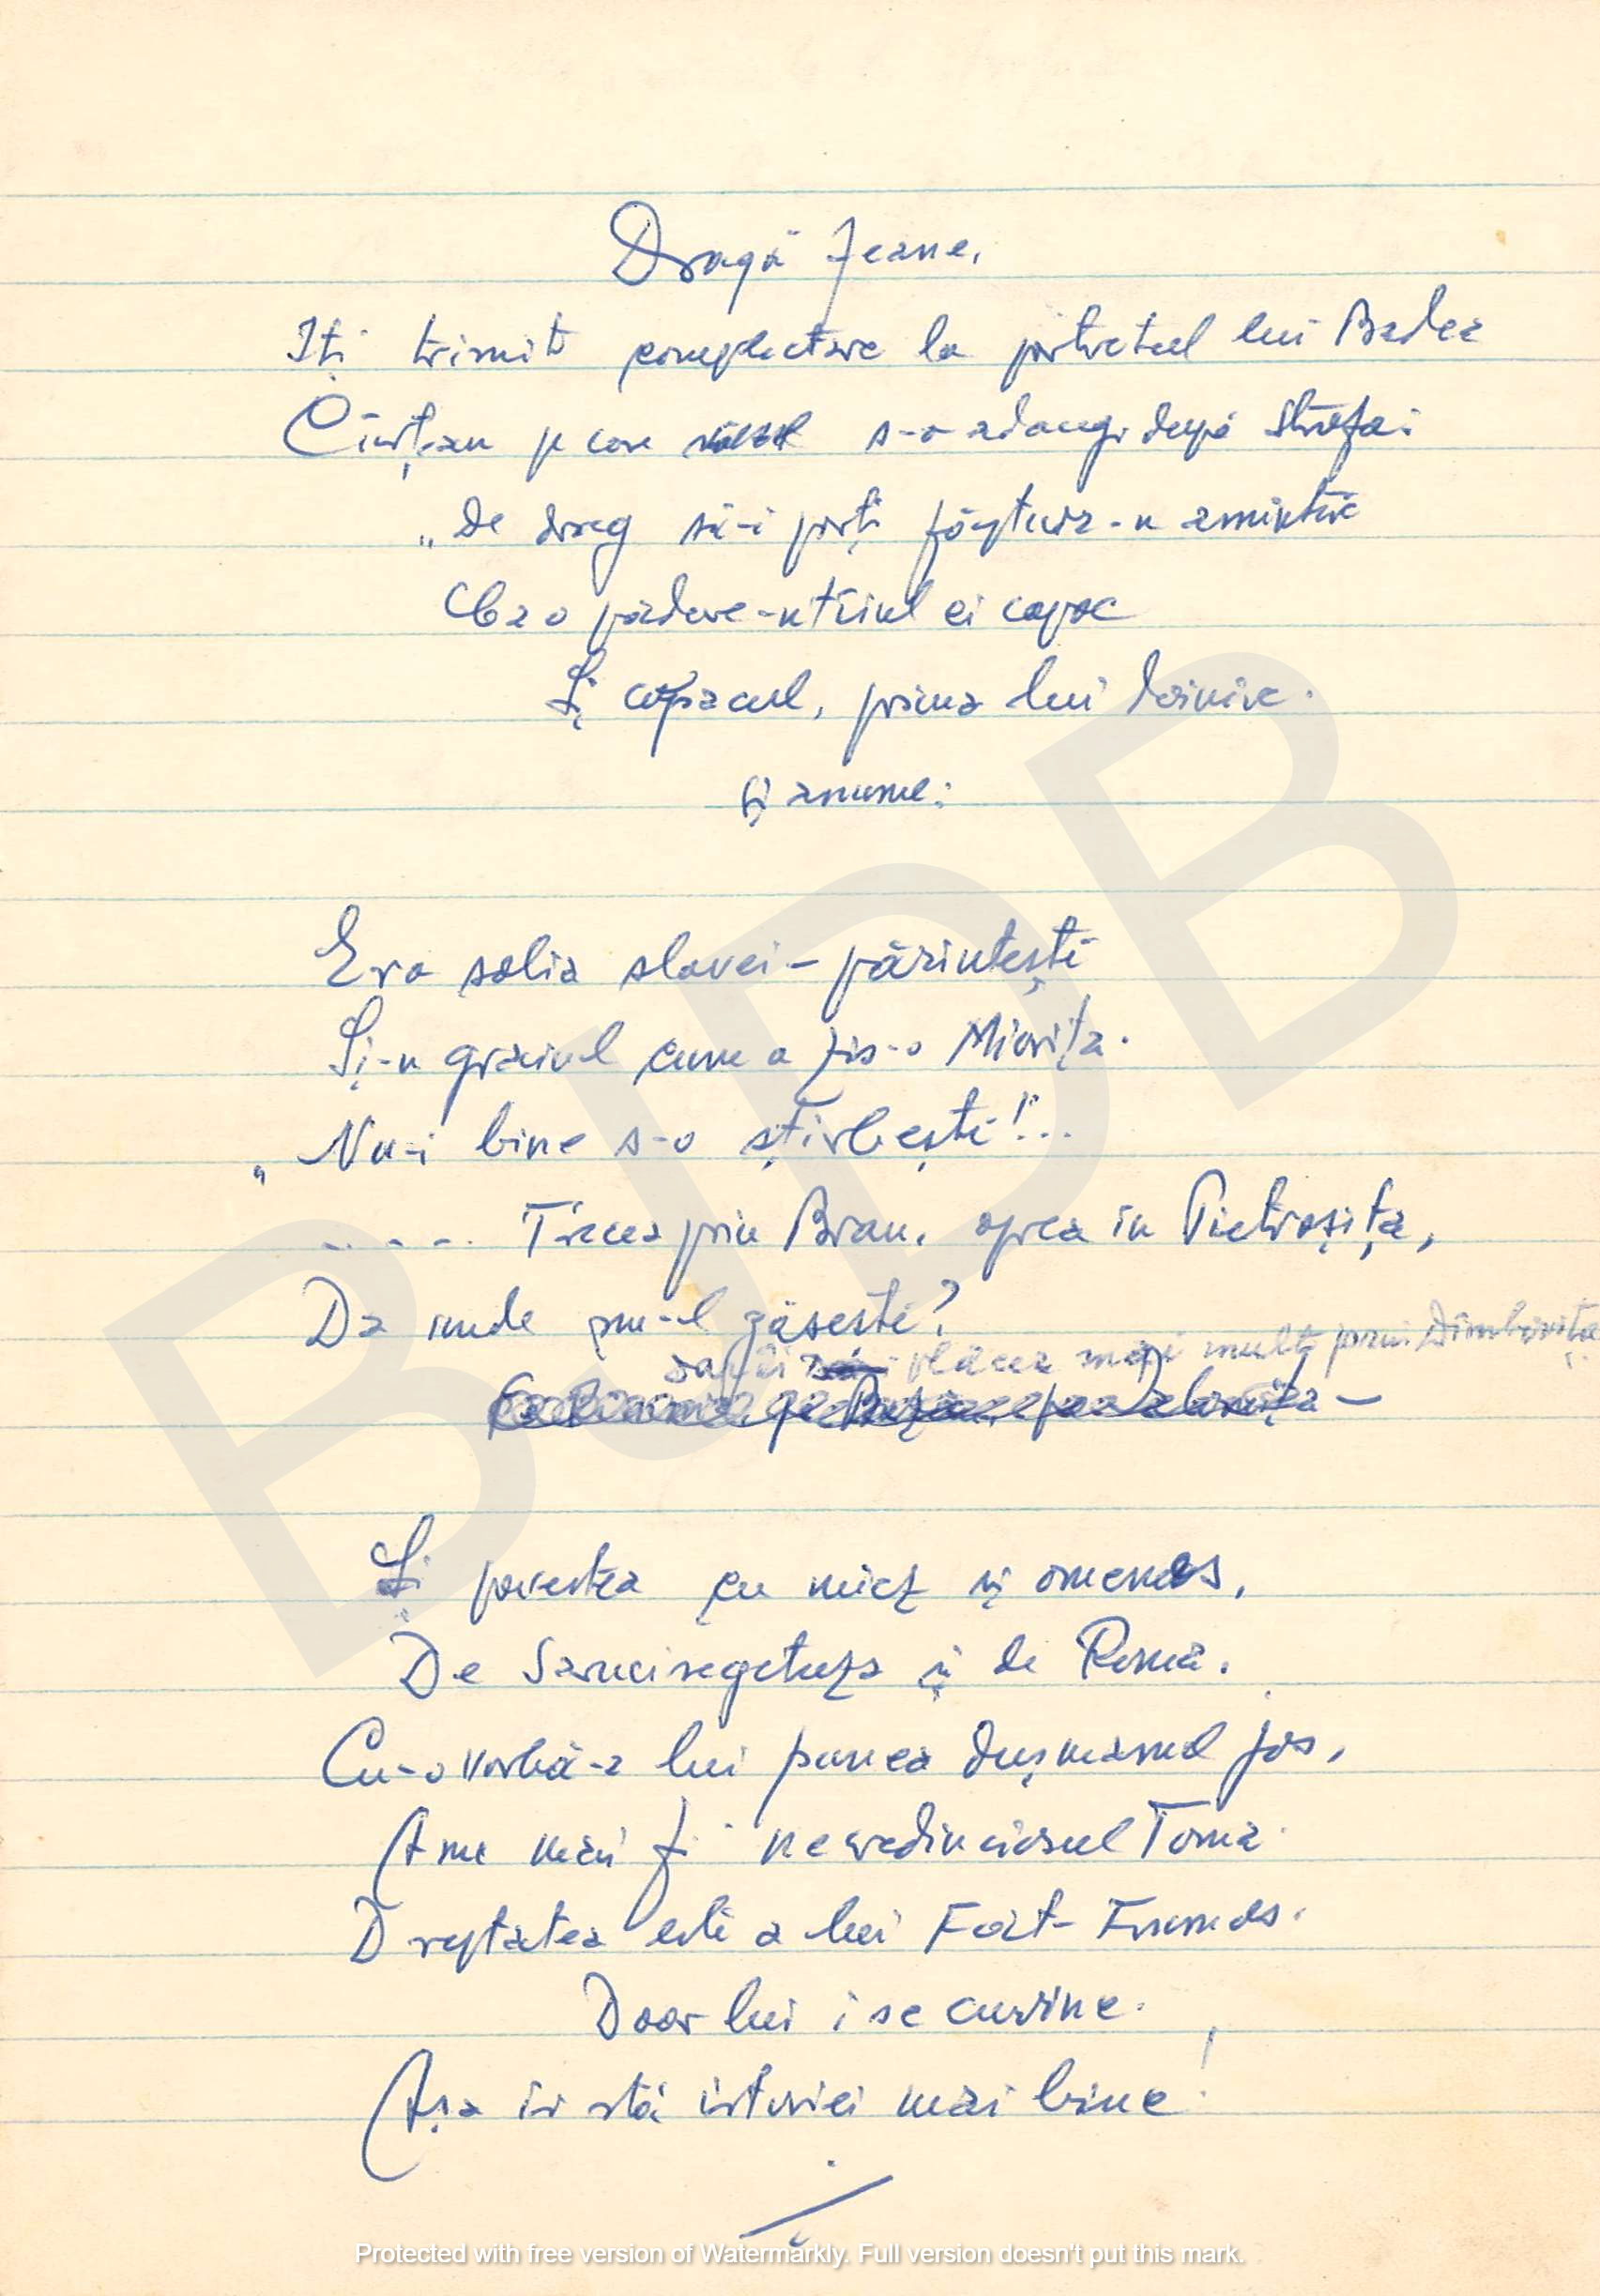 Dragă Jeane,
Iți trimit complectare la portretul lui Badea
Cîrțan pe care s-o adaugi după strofa:
„De drag să-i porți făptura-n amintire
Ca o pădure-ntriul ei copac
Și copacul, prima lui
și anume:
Era solia slavei-părintești
Și-n graiul cum a zis-o Miorița.
„Nu-i bine s-o știrbești!"...
..... Trecea prin Bran, oprea in Pietroșița,
Da unde nu-l găsești?
plăcea mai mult prin Dîmbovița
Și povestea cu miez și omenos,
De Sarmisegetuza și de Roma.
Cu-o vorbă-a lui punea dușmanul jos,
A mai fi necredinciosul Toma
Dreptatea este a lui Făt-Frumos.
Doar lui i se cuvine.
Așa îi stă istoriei mai bine!
BJDB
Protected with free version of Watermarkly. Full version doesn't put this mark.